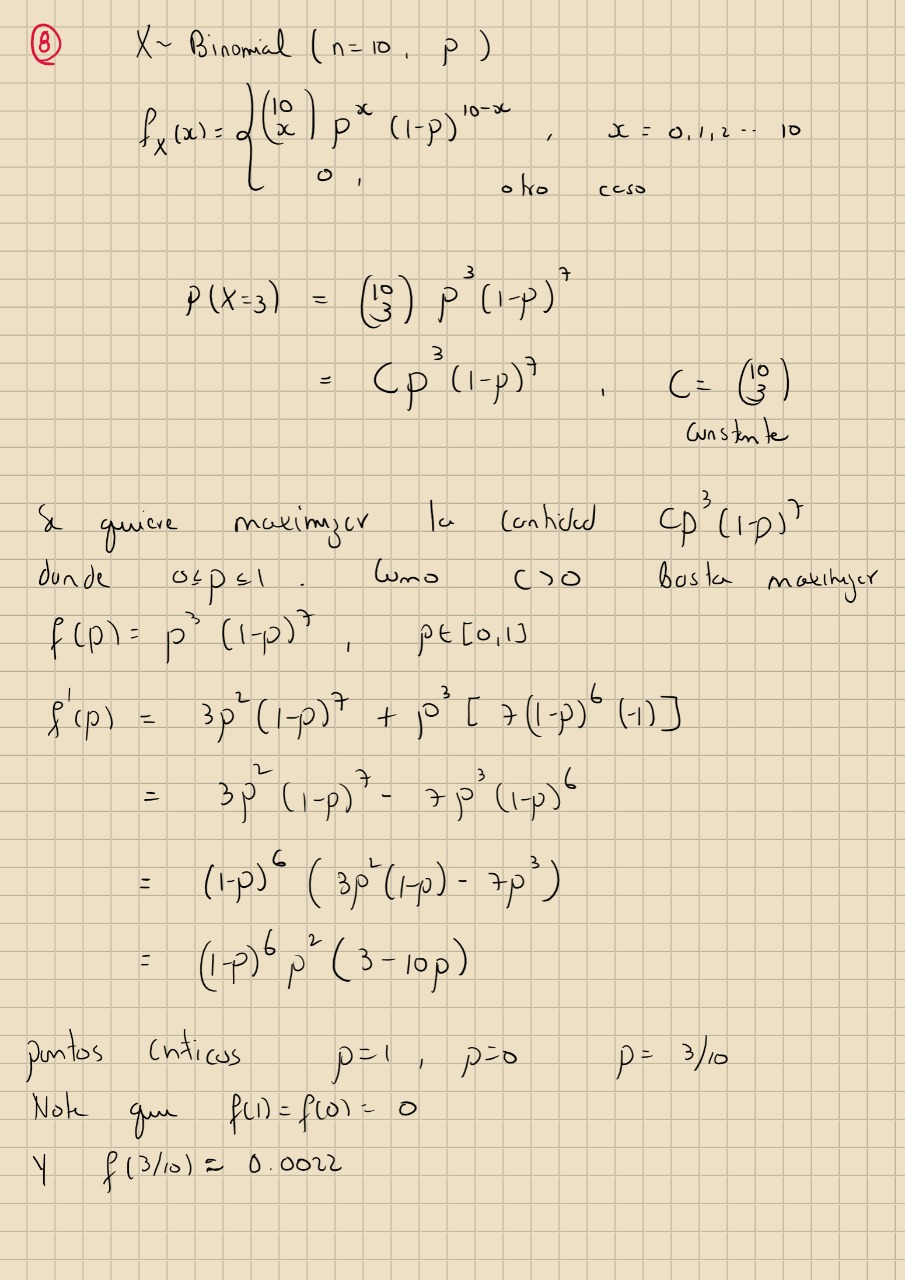 8 X ~ Binomial (n=10, p)
f_X(x) = { (10 x) p^x (1-p)^{10-x} , x = 0,1,2 ·· 10
0 , otro caso
P(X=3) = (10 3) p^3 (1-p)^7
= Cp^3 (1-p)^7 , C = (10 3)
constante
Se quiere maximizar la cantidad Cp^3 (1-p)^7
donde 0≤p≤1 . Como C>0 basta maximizar
f(p) = p^3 (1-p)^7 , p∈[0,1]
f'(p) = 3p^2 (1-p)^7 + p^3 [ 7(1-p)^6 (-1) ]
= 3p^2 (1-p)^7 - 7p^3 (1-p)^6
= (1-p)^6 ( 3p^2 (1-p) - 7p^3 )
= (1-p)^6 p^2 ( 3 - 10p )
puntos criticos p=1 , p=0 p = 3/10
Note que f(1) = f(0) = 0
Y f(3/10) = 0.0022